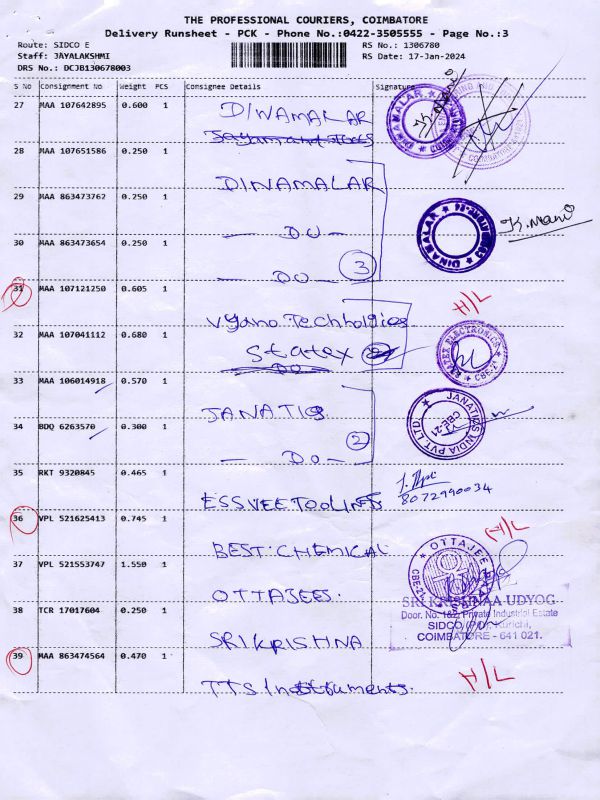 THE PROFESSIONAL COURIERS, COIMBATORE
Delivery Runsheet - PCK - Phone No.:0422-3505555 - Page No.:3
Route: SIDCO E RS No.: 1306780
Staff: JAYALAKSHMI RS Date: 17-Jan-2024
DRS No.: DCJB130678003
S No Consignment No Weight PCS Consignee Details Signature
27 MAA 107642895 0.600 1 DINAMALAR
28 MAA 107651586 0.250 1 DINAMALAR
29 MAA 863473762 0.250 1 — DO —
30 MAA 863473654 0.250 1 — DO — 3
31 MAA 107121250 0.605 1 Vyano Technolgies H/L
32 MAA 107041112 0.680 1 Statex
DO
33 MAA 106014918 0.570 1 JANATICS
34 BDQ 6263570 0.300 1 — DO — 2
35 RKT 9320845 0.465 1 ESSVEE TOOLINGS 8072990034
36 VPL 521625413 0.745 1 BEST CHEMICAL H/L
37 VPL 521553747 1.550 1 OTTAJEES.
38 TCR 17017604 0.250 1 SRI KRISHNA
39 MAA 863474564 0.470 1 TTS Instuments. H/L
DINAMALAR
DINAMALAR
K. Mani
JANATICS INDIA PVT LTD.
CBE-21
OTTAJEE
CBE-21
SRI KRISHNAA UDYOG
Door. No. 1&2, Private Industrial Estate
SIDCO (PO), Kurichi,
COIMBATORE - 641 021.